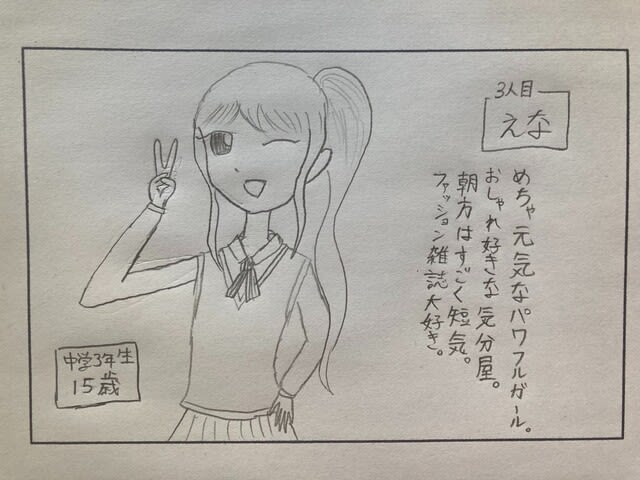 3人目
えな
めちゃ元気なパワフルガール。
おしゃれ好きな気分屋。
朝方はすごく短気。
ファッション雑誌大好き。
中学3年生
15歳